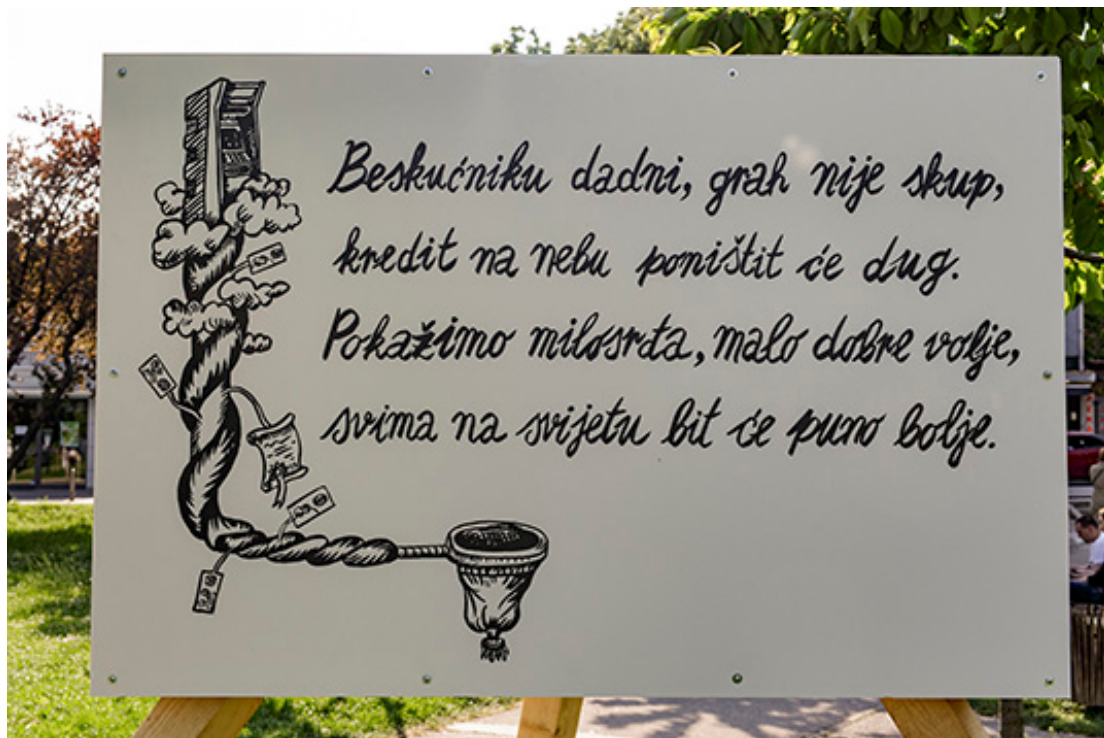 Beskućniku dadni, grah nije skup,
kredit na nebu poništit će dug.
Pokažimo milosrđa, malo dobre volje,
svima na svijetu bit će puno bolje.